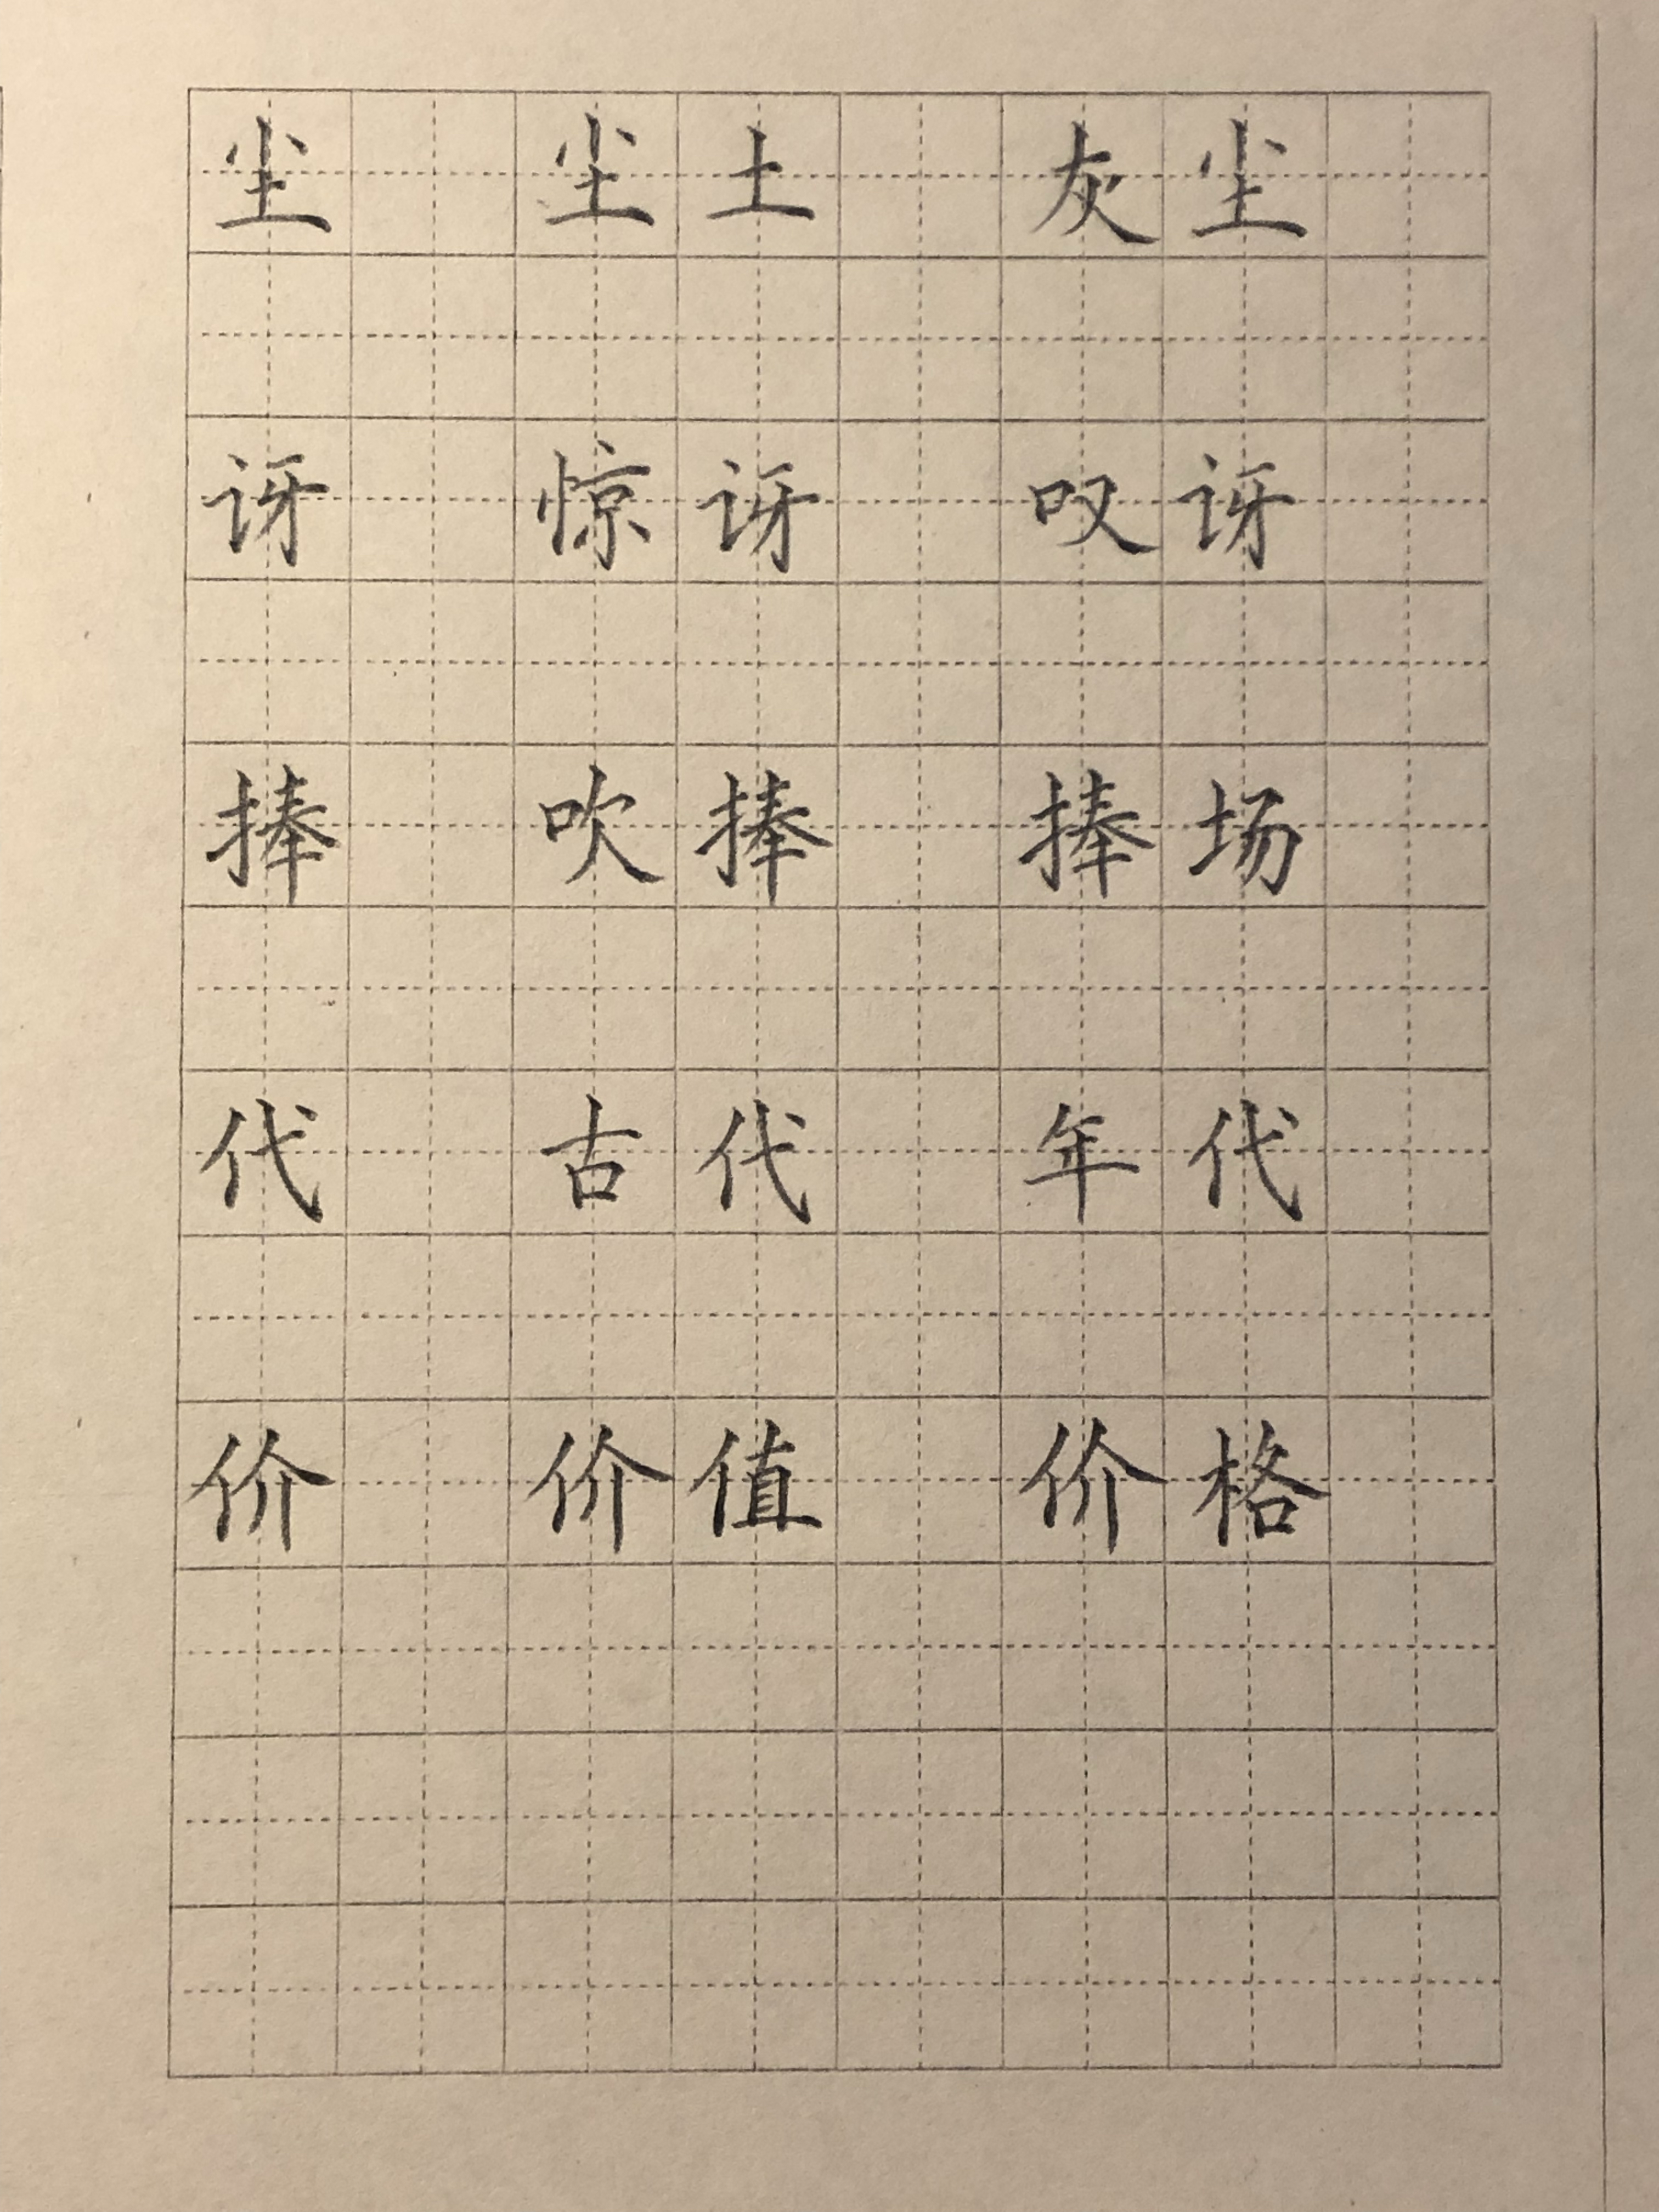 尘 尘土 灰尘
讶 惊讶 叹讶
捧 吹捧 捧场
代 古代 年代
价 价值 价格